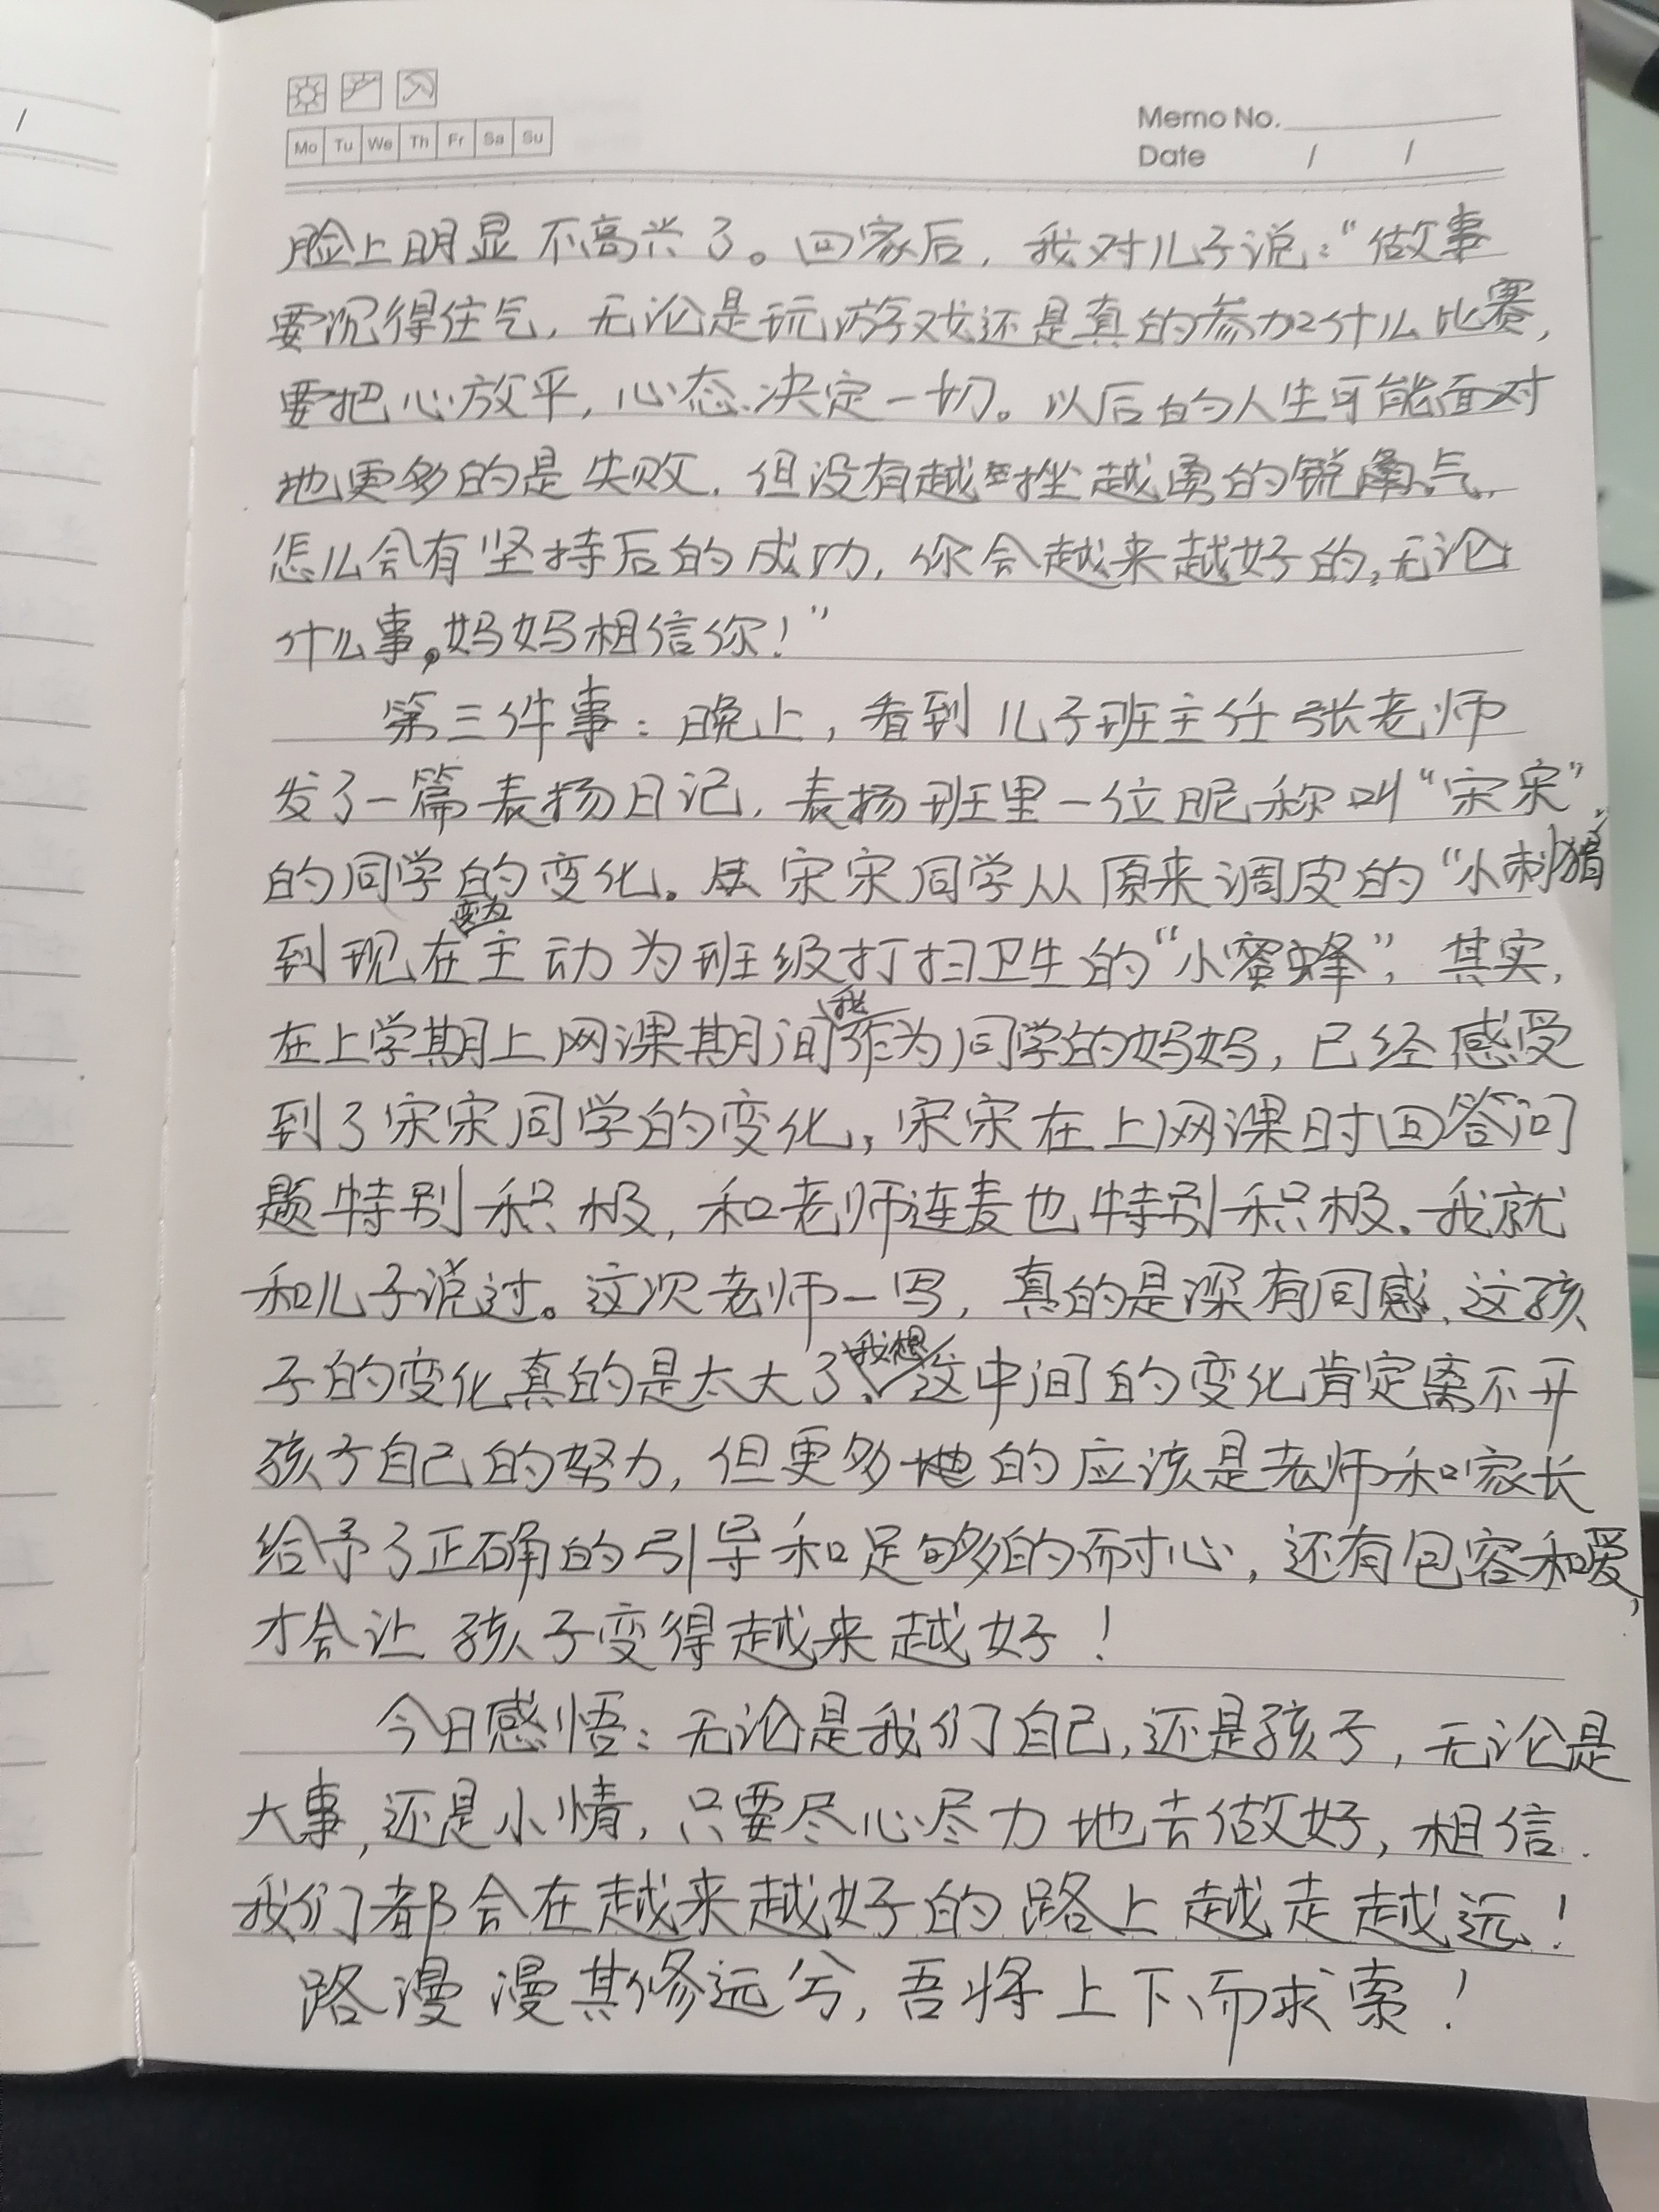 /
Mo Tu We Th Fr Sa Su
Memo No.
Date / /
脸上明显不高兴了。回家后，我对儿子说："做事
要沉得住气，无论是玩游戏还是真的参加什么比赛，
要把心放平，心态决定一切。以后的人生可能面对
地更多的是失败，但没有越挫越勇的锐气，
怎么会有坚持后的成功，你会越来越好的，无论
什么事。妈妈相信你！"
第三件事：晚上，看到儿子班主任张老师
发了一篇表扬日记，表扬班里一位昵称叫"宋宋"
的同学的变化。宋宋同学从原来调皮的"小刺猬"
到现在变为主动为班级打扫卫生的"小蜜蜂"，其实，
在上学期上网课期间我作为同学的妈妈，已经感受
到了宋宋同学的变化，宋宋在上网课时回答问
题特别积极，和老师连麦也特别积极。我就
和儿子说过。这次老师一写，真的是深有同感，这孩
子的变化真的是太大了，我想这中间的变化肯定离不开
孩子自己的努力，但更多地的应该是老师和家长
给予了正确的引导和足够的耐心，还有包容和爱，
才会让孩子变得越来越好！
今日感悟：无论是我们自己，还是孩子，无论是
大事，还是小情，只要尽心尽力地去做好，相信
我们都会在越来越好的路上越走越远！
路漫漫其修远兮，吾将上下而求索！